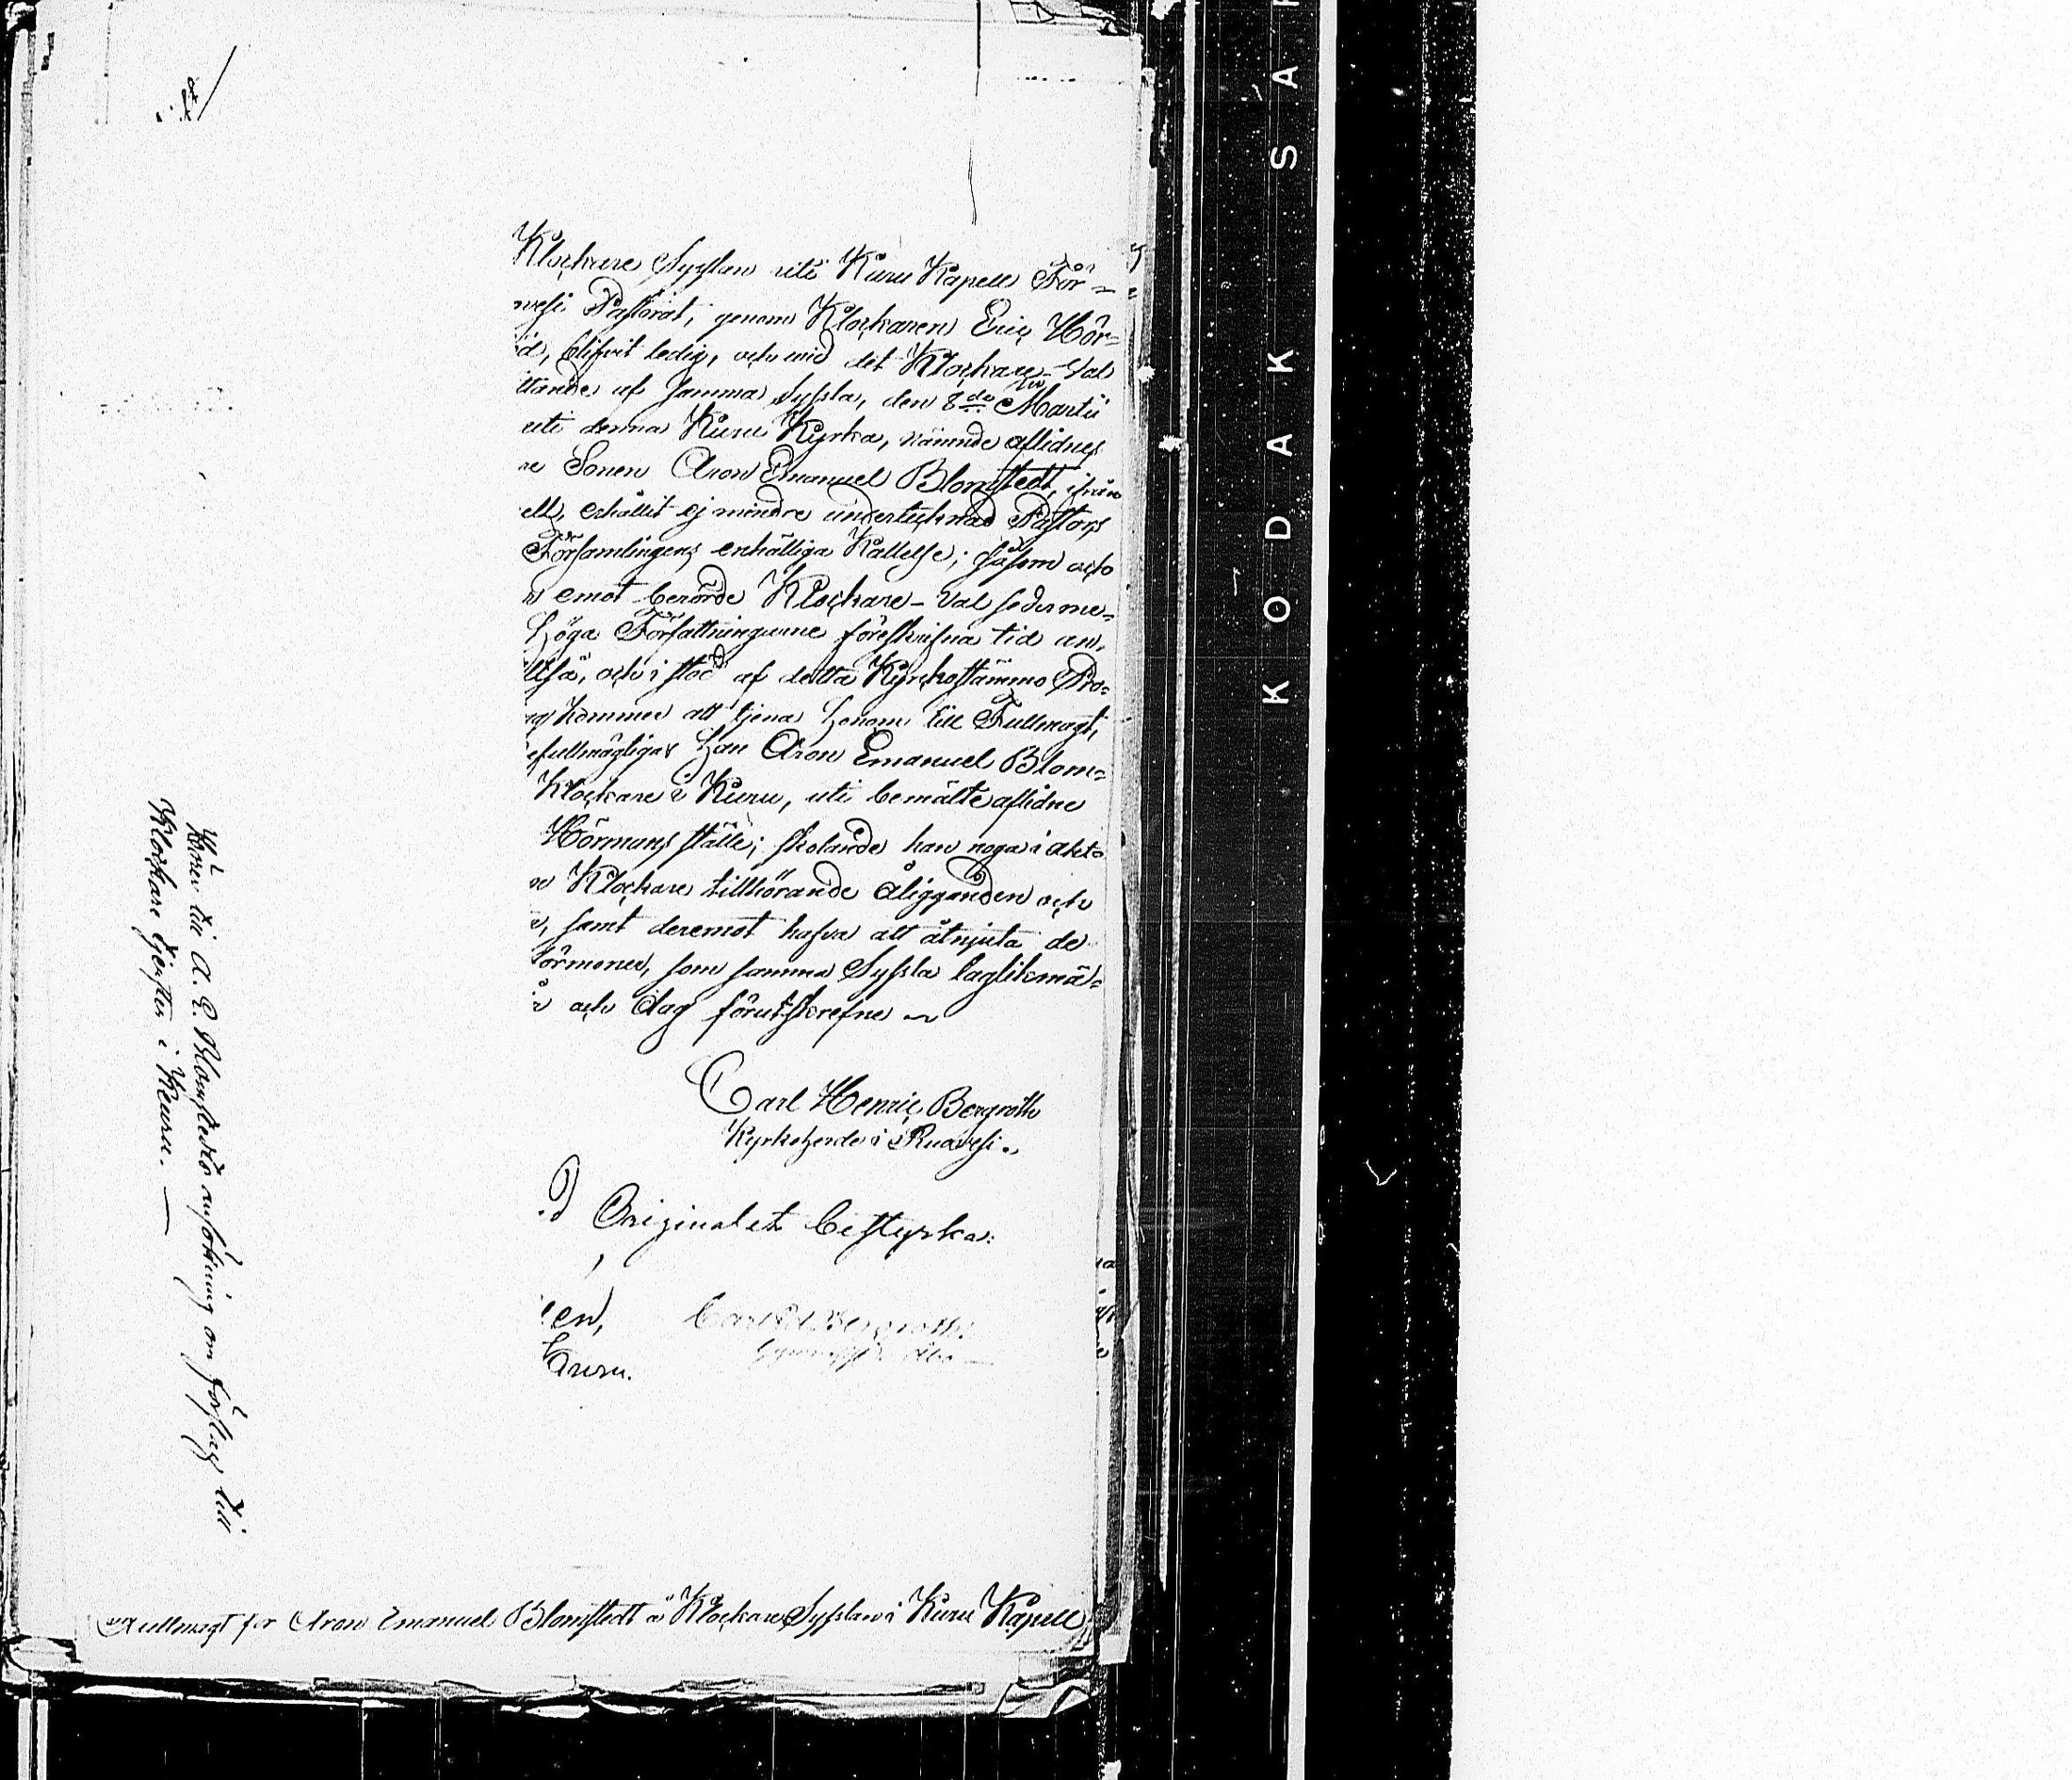 Klockare Sysslan uti Kuru Kapell För-
wesi Pastorat, genom Klockaren Eric Hör-
id, blifvit ledig, och wid det Klockare-Val
ttande af samma Syssla, den 8de Martii
uti denna Kuru Kyrka, nämnde aflidnes
re Sonen Aron Emanuel Blomstedt, ifrån
ell, erhållit ej mindre undertecknad Pastors
Församlingens enhälliga Kallelse; såsom och
emot berörde Klockare-Val sederme-
höga Författningarne föreskrifna tid an-
lltså, och i stöd af detta Kyrkostämmo Pro-
kommer att tjena honom till Fullmagt,
efullmägtigas han Aron Emanuel Blom-
Klockare i Kuru, uti bemälte aflidne
Hörmans ställe; skolande han noga i akt-
n Klockare tillhörande åligganden och
r, samt deremot hafva att åtnjuta de
förmoner, som samma Syssla lagliknmä-
och dag förutskrefne
Carl Henric Bergroth
Kyrkoherde i Ruovesi.
Originalet bestyrka:
en, Carl Bergroth
Kuru. Åbo
Hörer till A. E. Blomstedts ansökning om förslag till
Klockare tjensten i Kuru.
Fullmagt för Aron Emanuel Blomstedt å Klockare Sysslan i Kuru Kapell
KODAK SA